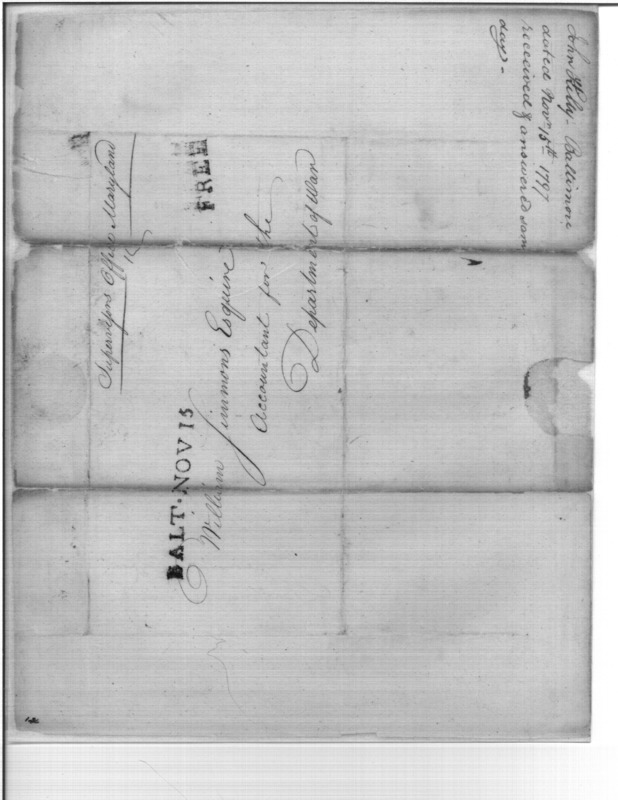 John Kilty - Baltimore
dated Novr. 15th 1797
received & answered sam
day -
Supervisors Office Maryland
FREE
BALT. NOV 15
William Simmons Esquire
Accountant for the
Department of War